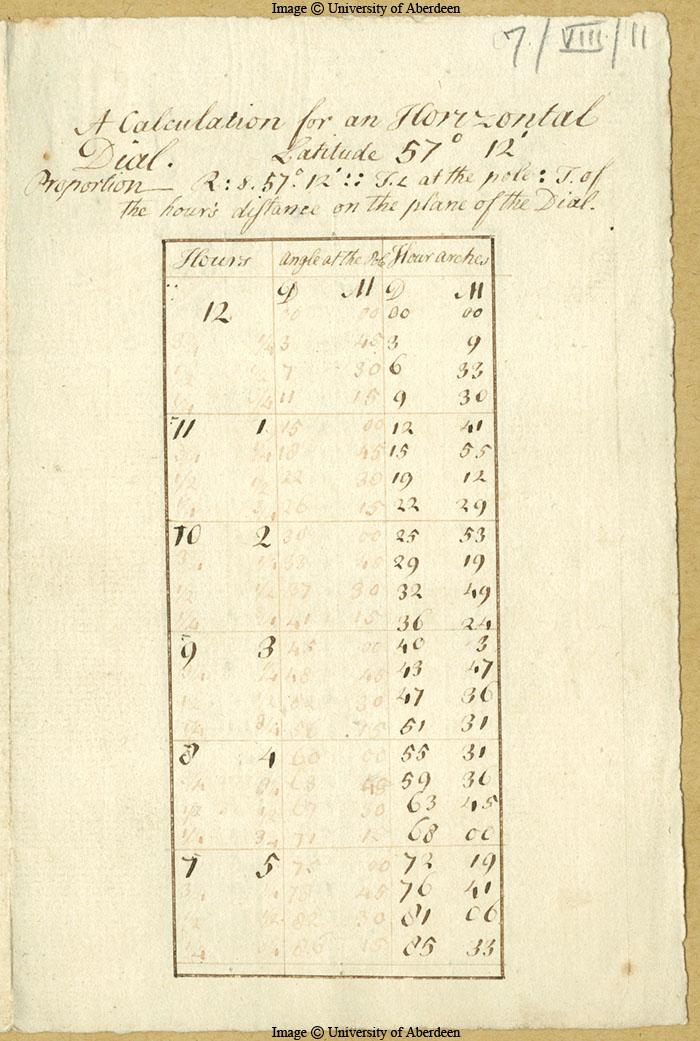 Image © University of Aberdeen
7/VIII/11
A Calculation for an Horizontal
Dial. Latitude 57° 12'
Proportion R : S. 57° 12' :: T. L at the pole : T. of
the hour's distance on the plane of the Dial.
Hours Angle at the Pole Hour arches
D M D M
12 00 00 00 00
3/4 1/4 3 45 3 9
1/2 1/2 7 30 6 33
1/4 3/4 11 15 9 30
11 1 15 00 12 41
3/4 1/4 18 45 15 55
1/2 1/2 22 30 19 12
1/4 3/4 26 15 22 29
10 2 30 00 25 53
3/4 1/4 33 45 29 19
1/2 1/2 37 30 32 49
1/4 3/4 41 15 36 24
9 3 45 00 40 3
3/4 1/4 48 45 43 47
1/2 1/2 52 30 47 36
1/4 3/4 56 15 51 31
8 4 60 00 55 31
3/4 63 45 59 36
1/2 1/2 67 30 63 45
1/4 3/4 71 15 68 00
7 5 75 00 72 19
3/4 1/4 78 45 76 41
1/2 1/2 82 30 81 06
1/4 3/4 86 15 85 33
Image © University of Aberdeen